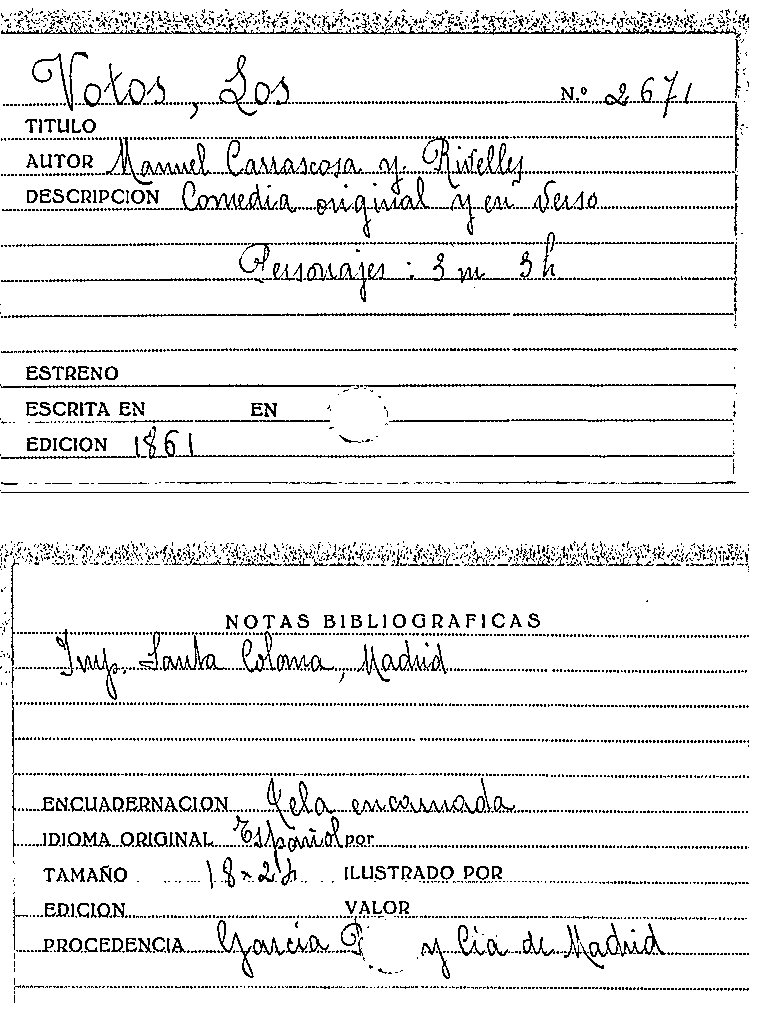 Votos, Los Nº 2671
TITULO
AUTOR Manuel Carrascosa y Rivelles
DESCRIPCION Comedia original y en verso
Personajes: 3 m 3 h
ESTRENO
ESCRITA EN EN
EDICION 1861
NOTAS BIBLIOGRAFICAS
Imp. Santa Coloma, Madrid
ENCUADERNACION Tela encarnada
IDIOMA ORIGINAL Español por
TAMAÑO 18 x ILUSTRADO POR
EDICION VALOR
PROCEDENCIA García y Cia de Madrid